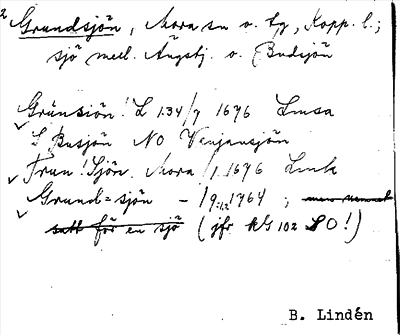 2
Grundsjön, Mora sn o. tg, Kopp. l.;
sjö mell. Ängstj. o. Budsjön
Grünsiön! L 134/7 1676 Lmsa
S Busjön NO Venjansjön
Frun! Sjön. Mora /1 1696 Lmk
Grund=sjön – /9.12 1764 ;
satt för en sjö (jfr KG 102 SO!)
B. Lindén